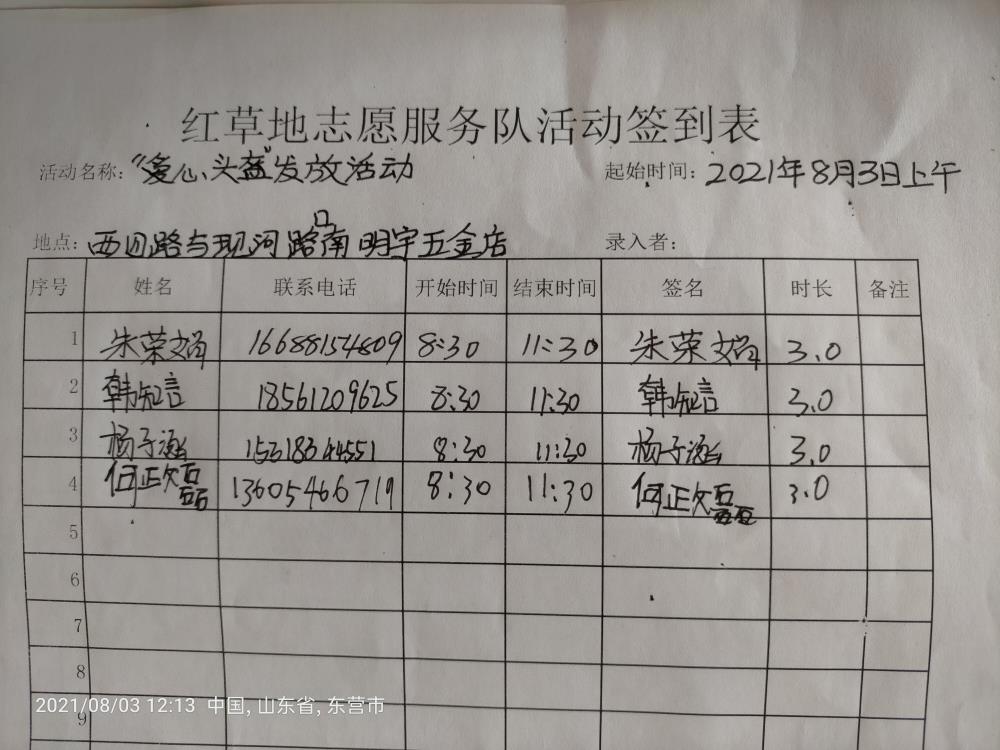 红草地志愿服务队活动签到表
活动名称：“爱心头盔”发放活动 起始时间：2021年8月3日上午
地点：西四路与现河路口南明宇五金店 录入者：
序号 姓名 联系电话 开始时间 结束时间 签名 时长 备注
1 朱荣娟 16688154809 8:30 11:30 朱荣娟 3.0
2 韩知言 18561209625 8:30 11:30 韩知言 3.0
3 杨子涵 8:30 11:30 杨子涵 3.0
4 何正 13605466719 8:30 11:30 何正 3.0
5
6
7
8
9
2021/08/03 12:13 中国, 山东省, 东营市